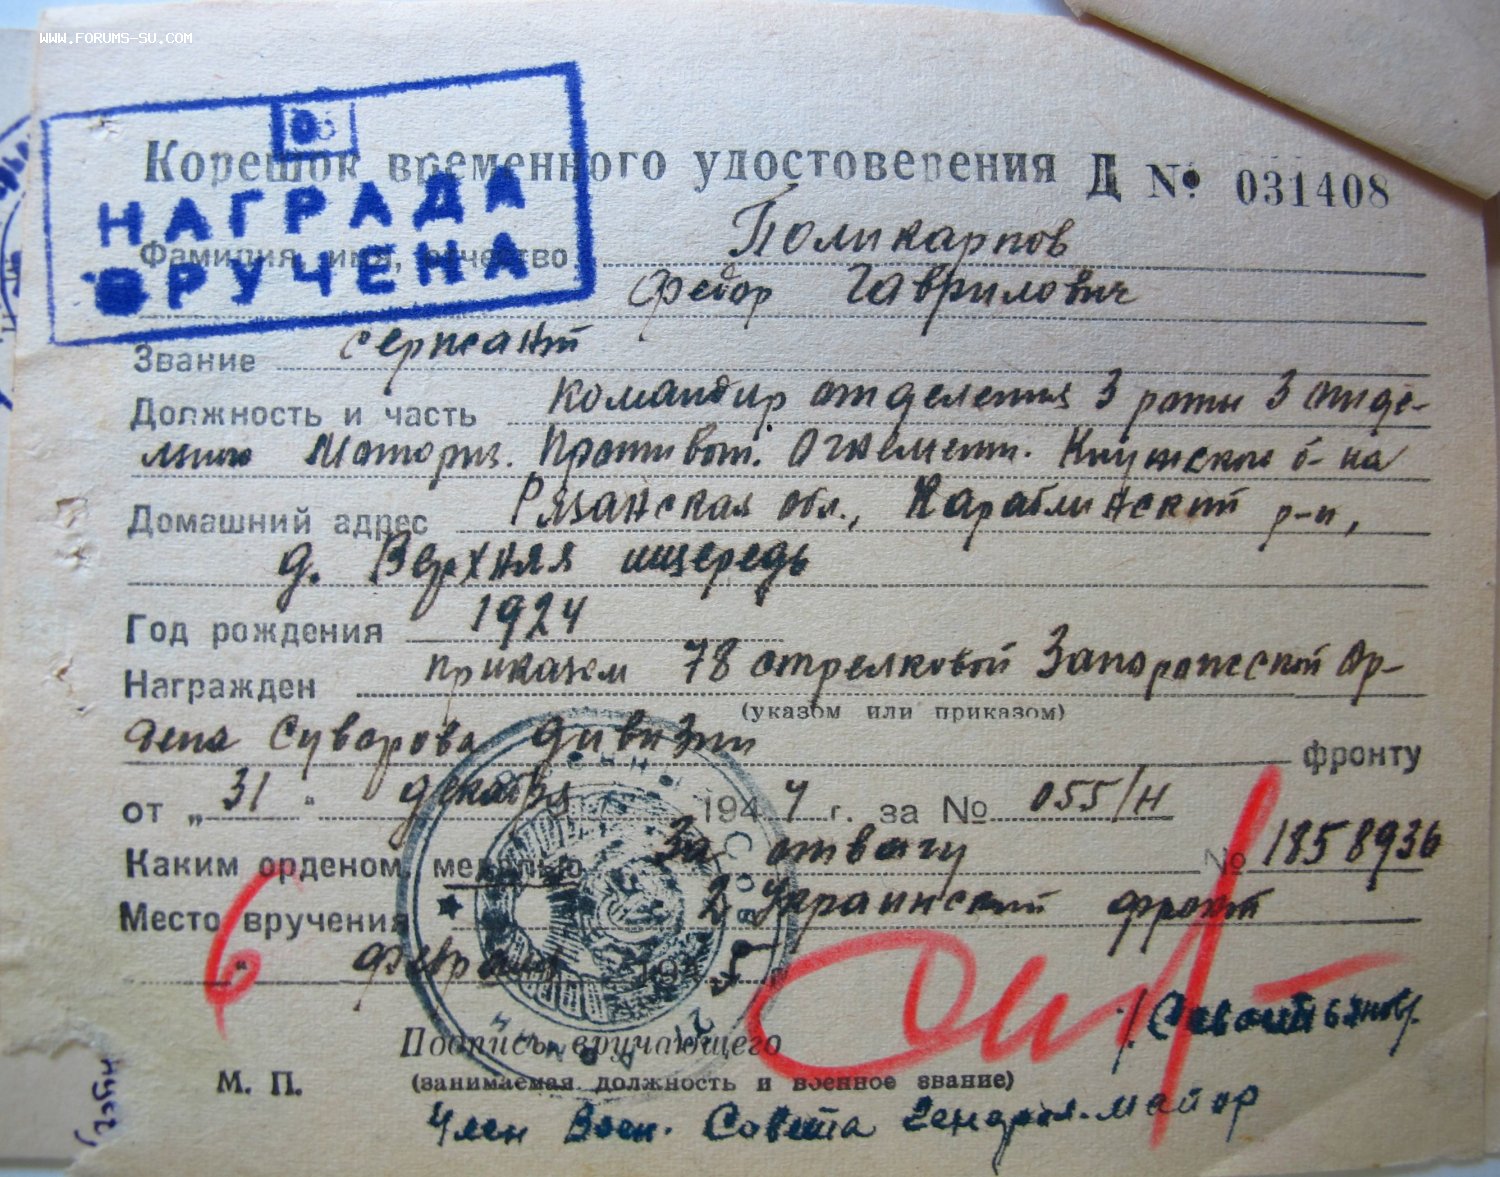 WWW.FORUMS-SU.COM
НАГРАДА
ВРУЧЕНА
Корешок временного удостоверения Д № 031408
Фамилия, имя, отчество Поликарпов
Федор Гаврилович
Звание сержант
Должность и часть командир отделения 3 роты 3 отде-
Моториз. Противот. Огнеметн. б-на
Домашний адрес Рязанская обл., Кораблинский р-н,
д. Верхняя ищередь
Год рождения 1924
Награжден приказом 78 стрелковой Запорожской Ор-
(указом или приказом)
дена Суворова дивизии фронту
от „31“ декабря 1944 г. за № 055/н
Каким орденом, медалью За отвагу № 1858936
Место вручения 2 Украинский фронт
6 “ февраля 1945
Подпись вручающего
М. П. (занимаемая должность и военное звание)
Член Воен. Совета Генерал-майор